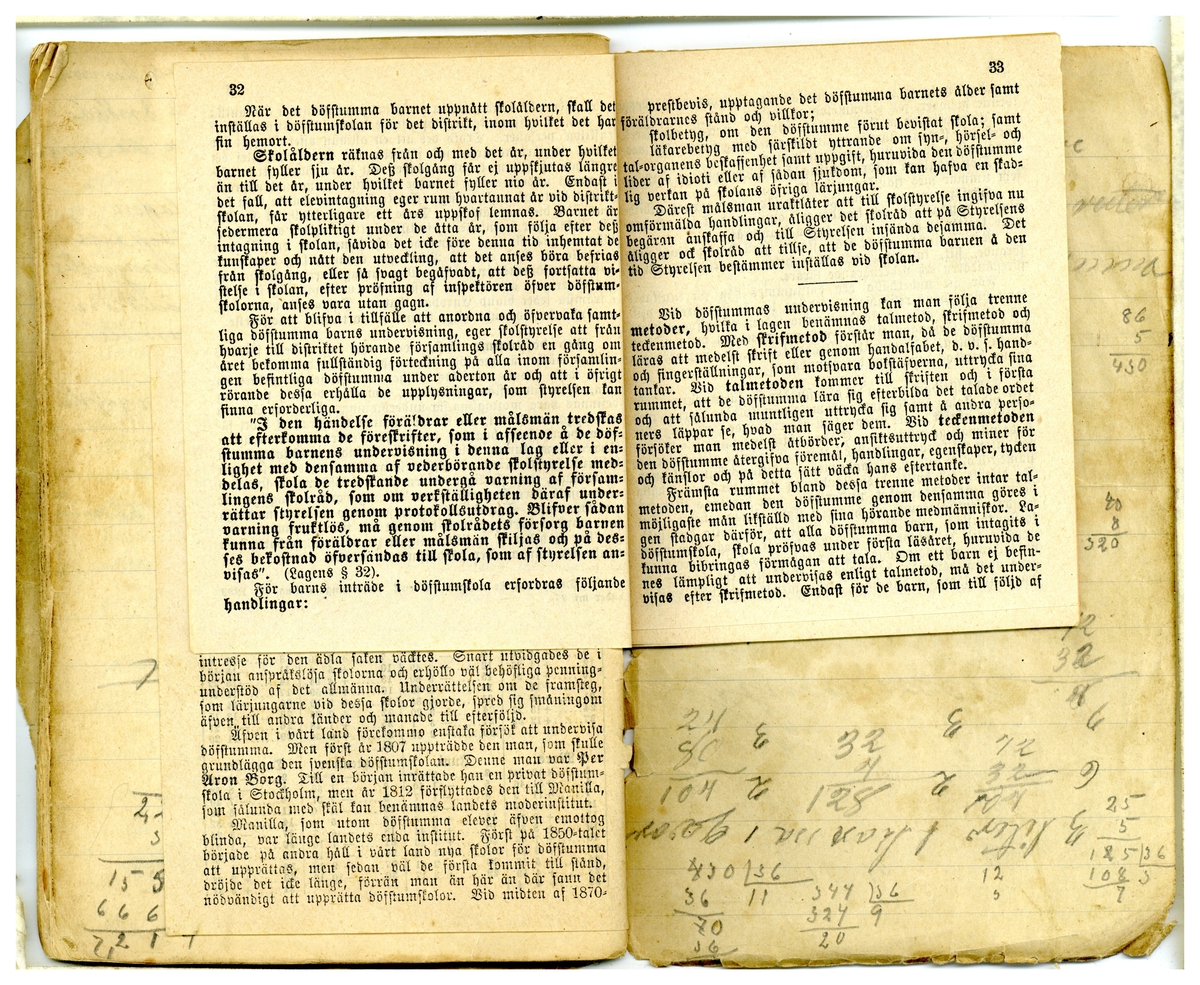 32
När det döfstumma barnet uppnått skolåldern, skall det
inställas i döfstumskolan för det distrikt, inom hvilket det har
sin hemort.
Skolåldern räknas från och med det år, under hvilket
barnet fyller sju år. Deß skolgång får ej uppskjutas längre
än till det år, under hvilket barnet fyller nio år. Endast i
det fall, att elevintagning eger rum hvartannat år vid distrikt-
skolan, får ytterligare ett års uppskof lemnas. Barnet är
sedermera skolpliktigt under de åtta år, som följa efter deß
intagning i skolan, såvida det icke före denna tid inhemtat de
kunskaper och nått den utveckling, att det anses böra befrias
från skolgång, eller så svagt begåfvadt, att deß fortsatta vi-
stelse i skolan, efter pröfning af inspektören öfver döfstum-
skolorna, anses vara utan gagn.
För att blifva i tillfälle att anordna och öfvervaka samt-
liga döfstumma barns undervisning, eger skolstyrelse att från
hvarje till distriktet hörande församlings skolråd en gång om
året bekomma fullständig förteckning på alla inom församlin-
gen befintliga döfstumma under aderton år och att i öfrigt
rörande dessa erhålla de upplysningar, som styrelsen kan
finna erforderliga.
"I den händelse föräldrar eller målsmän tredskas
att efterkomma de föreskrifter, som i afseende å de döf-
stumma barnens undervisning i denna lag eller i en-
lighet med densamma af vederbörande skolstyrelse med-
delas, skola de tredskande undergå varning af försam-
lingens skolråd, som om verkställigheten däraf under-
rättar styrelsen genom protokollsutdrag. Blifver sådan
varning fruktlös, må genom skolrådets försorg barnen
kunna från föräldrar eller målsmän skiljas och på des-
ses bekostnad öfversändas till skola, som af styrelsen an-
visas". (Lagens § 32).
För barns inträde i döfstumskola erfordras följande
handlingar:
intresse för den ädla saken väcktes. Snart utvidgades de i
början anspråkslösa skolorna och erhöllo väl behöfliga penning-
understöd af det allmänna. Underrättelsen om de framsteg,
som lärjungarne vid dessa skolor gjorde, spred sig småningom
äfven till andra länder och manade till efterföljd.
Äfven i vårt land förekommo enstaka försök att undervisa
döfstumma. Men först år 1807 uppträdde den man, som skulle
grundlägga den svenska döfstumskolan. Denne man var Per
Aron Borg. Till en början inrättade han en privat döfstum-
skola i Stockholm, men år 1812 förflyttades den till Manilla,
som sålunda med skäl kan benämnas landets moderinstitut.
Manilla, som utom döfstumma elever äfven emottog
blinda, var länge landets enda institut. Först på 1850-talet
började på andra håll i vårt land nya skolor för döfstumma
att upprättas, men sedan väl de första kommit till stånd,
dröjde det icke länge, förrän man än här än där fann det
nödvändigt att upprätta döfstumskolor. Vid midten af 1870-
33
prestbevis, upptagande det döfstumma barnets ålder samt
föräldrarnes stånd och villkor;
skolbetyg, om den döfstumme förut bevistat skola; samt
läkarebetyg med särskildt yttrande om syn-, hörsel- och
tal-organens beskaffenhet samt uppgift, huruvida den döfstumme
lider af idioti eller af sådan sjukdom, som kan hafva en skad-
lig verkan på skolans öfriga lärjungar.
Därest målsman uraktlåter att till skolstyrelse ingifva nu
omförmälda handlingar, åligger det skolråd att på Styrelsens
begäran anskaffa och till Styrelsen insända desamma. Det
åligger ock skolråd att tillse, att de döfstumma barnen å den
tid Styrelsen bestämmer inställas vid skolan.
Vid döfstummas undervisning kan man följa trenne
metoder, hvilka i lagen benämnas talmetod, skrifmetod och
teckenmetod. Med skrifmetod förstår man, då de döfstumma
läras att medelst skrift eller genom handalfabet, d. v. s. hand-
och fingerställningar, som motsvara bokstäfverna, uttrycka sina
tankar. Vid talmetoden kommer till skriften och i första
rummet, att de döfstumma lära sig efterbilda det talade ordet
och att sålunda muntligen uttrycka sig samt å andra perso-
ners läppar se, hvad man säger dem. Vid teckenmetoden
försöker man medelst åtbörder, ansiktsuttryck och miner för
den döfstumme återgifva föremål, handlingar, egenskaper, tycken
och känslor och på detta sätt väcka hans eftertanke.
Främsta rummet bland dessa trenne metoder intar tal-
metoden, emedan den döfstumme genom densamma göres i
möjligaste mån likställd med sina hörande medmänniskor. La-
gen stadgar därför, att alla döfstumma barn, som intagits i
döfstumskola, skola pröfvas under första läsåret, huruvida de
kunna bibringas förmågan att tala. Om ett barn ej befin-
nes lämpligt att undervisas enligt talmetod, må det under-
visas efter skrifmetod. Endast för de barn, som till följd af
86
5
430
40
8
320
12
32
25
5
125 36
108 3
430 36
36 11
70
36
344 36
324 9
20
12